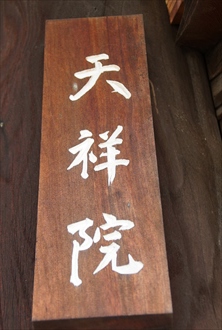 天祥院